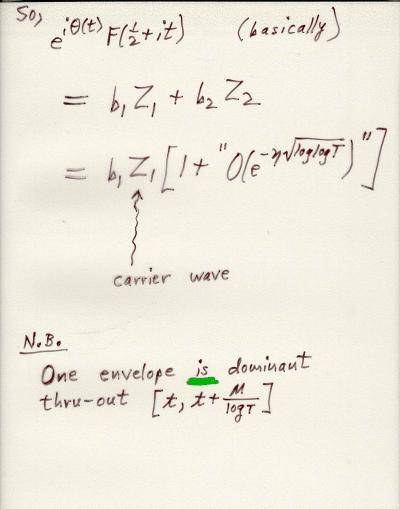 So,
e^{iθ(t)} F(½+it) (basically)
= b₁Z₁ + b₂Z₂
= b₁Z₁[1+ "O(e^{-η√loglogT})"]
carrier wave
N.B.
One envelope is dominant
thru-out [t, t+M/logT]